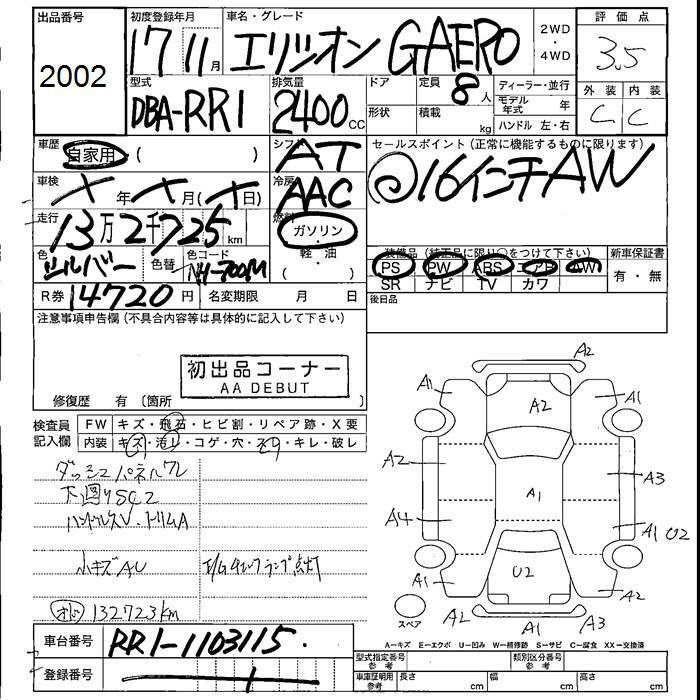 出品番号
2002
初度登録年月
17 11月
車名・グレード
エリシオン GAERO
2WD
・
4WD
評価点
3.5
外装 内装
C C
型式
DBA-RR1
排気量
2400cc
ドア
形状
定員
8人
積載
kg
ディーラー・並行
モデル年式 年
ハンドル 左・右
車歴
自家用 ( )
シフト
AT
セールスポイント (正常に機能するものに限ります)
◎16インチAW
車検
×年×月(×日)
冷房
AAC
走行
13万2千725km
燃料
ガソリン
軽・油
( )
色
シルバー
色替
色コード
NH-700M
装備品 (純正品に限り○をつけて下さい)
PS PW ABS エアB AW
SR ナビ TV カワ
新車保証書
有・無
R券 14720円
名変期限 月 日
後日品
注意事項申告欄 (不具合内容等は具体的に記入して下さい)
初出品コーナー
AA DEBUT
修復歴 有 〔箇所 〕
検査員
記入欄
FW キズ・飛石・ヒビ割・リペア跡・X要
内装 キズ・汚レ・コゲ・穴・スレ・キレ・破レ
ダッシュパネルワレ
下廻りSC2
ハンドルスレ・トリムA
小キズAU
E/Gチェックランプ点灯
オド 132723km
A2
A1 A1
A2
A2 A3
A1
A4 A1 U2
U2
A1 A2
A2 A1 A3
スペア
A=キズ E=エクボ U=凹み W=補修跡 S=サビ C=腐食 XX=交換済
車台番号
RR1-1103115
登録番号
型式指定番号
参考
類別区分番号
参考
車庫証明用
参考
長さ cm 幅 cm 高さ cm